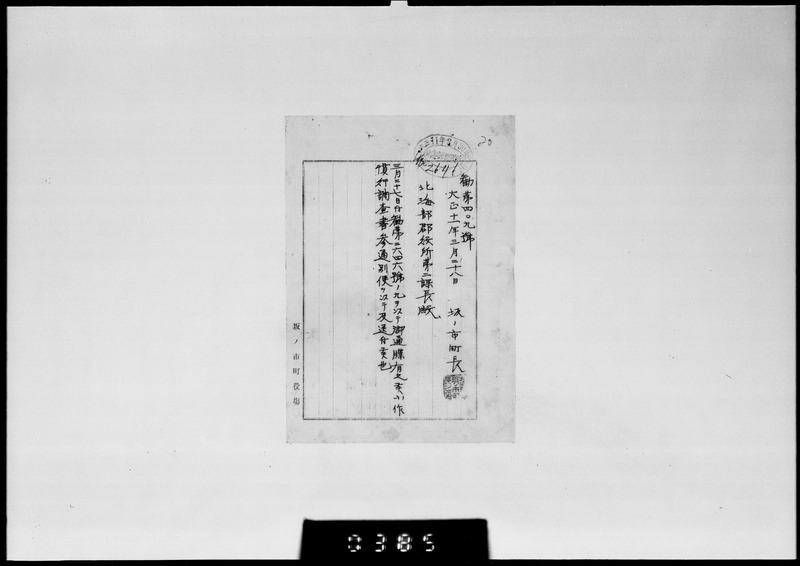 勧第四〇九號
大正十一年三月二十八日
坂ノ市町長
北海部郡役所第二課長殿
三月二十七日付勧第二六四六號ノ九ヲ以テ御通牒有之候小作
慣行調査書参通別便ヲ以テ及送付候也
坂ノ市町役場
20
2646
0385